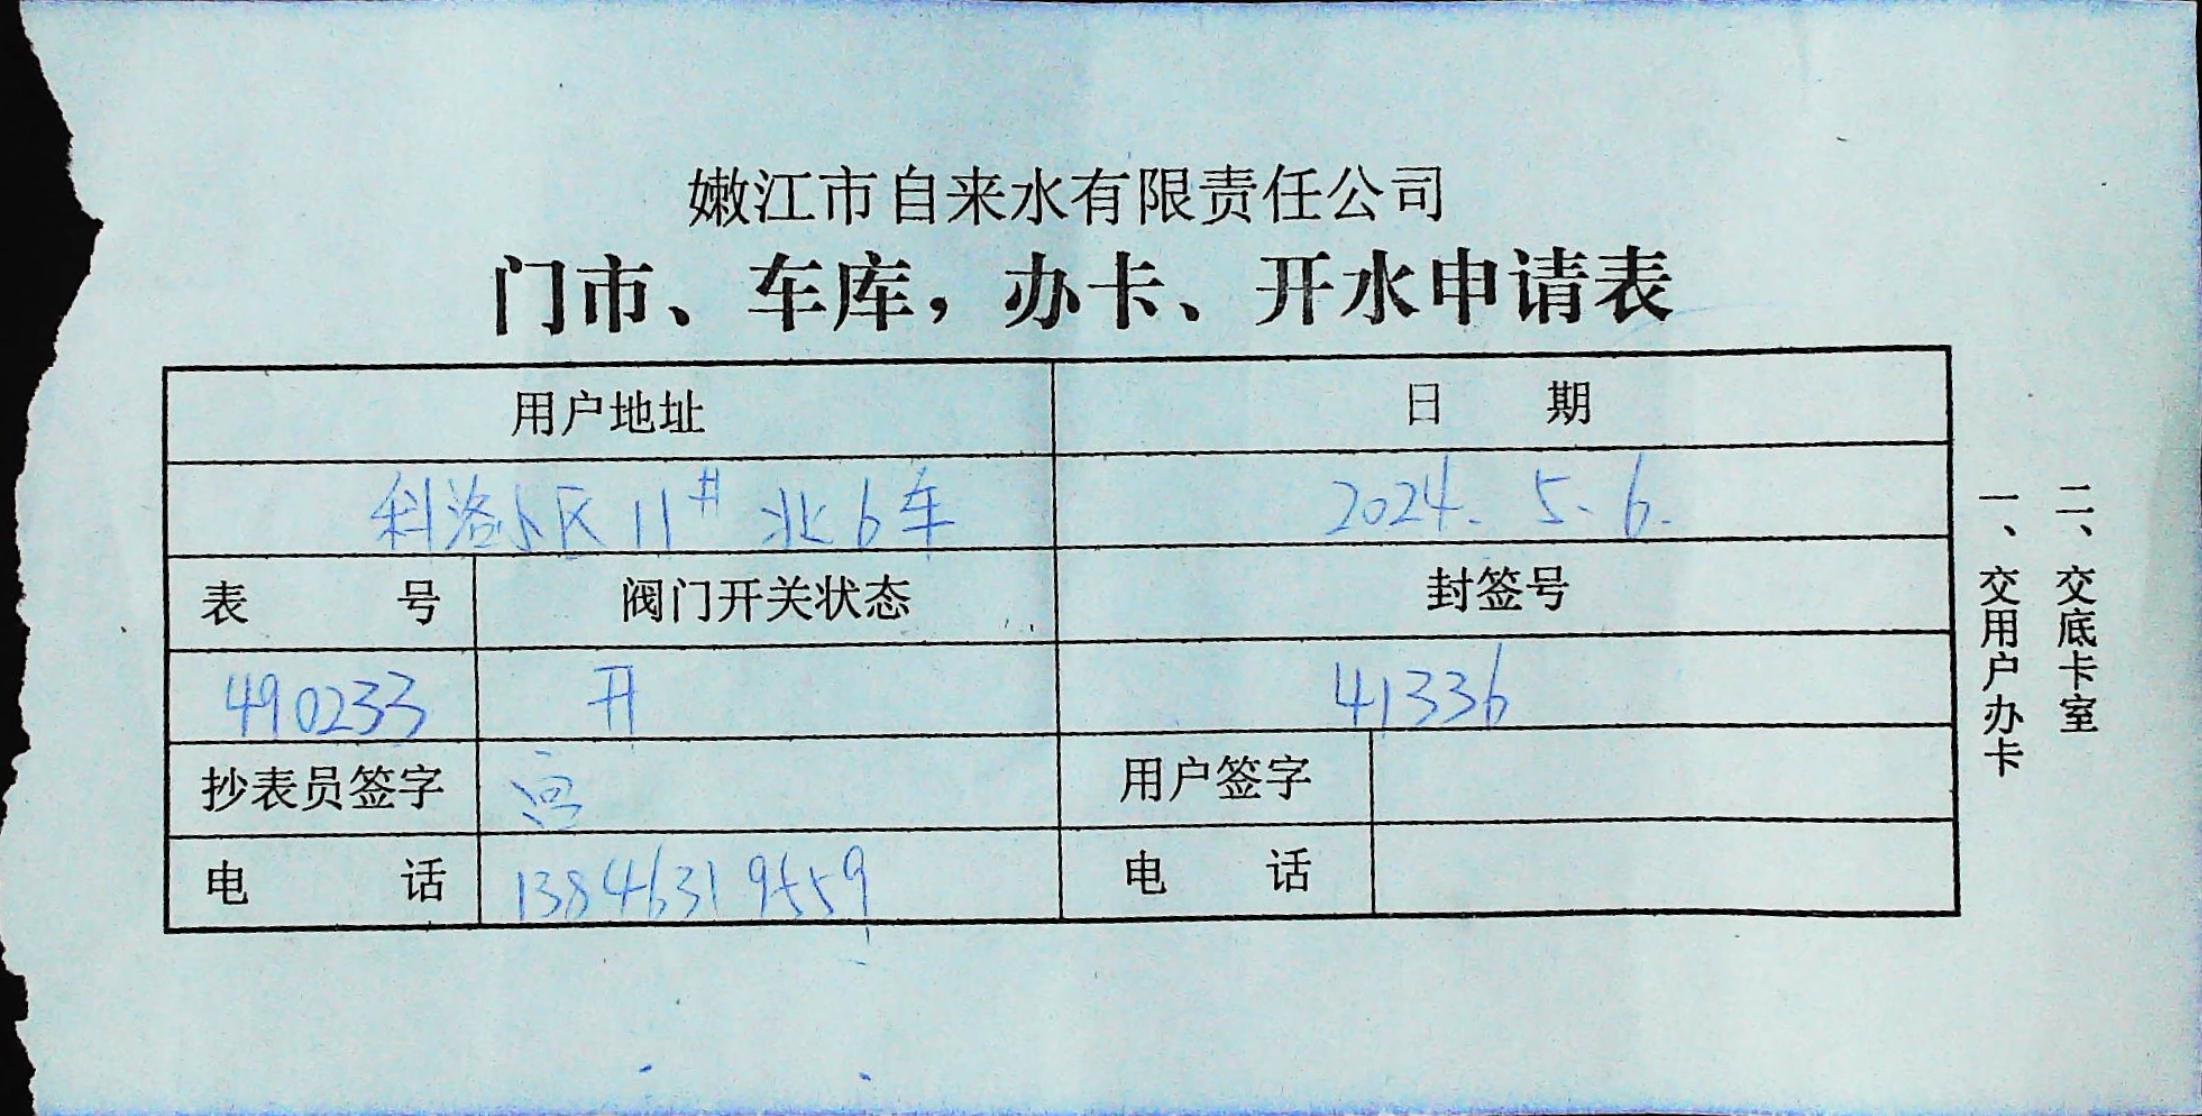 嫩江市自来水有限责任公司
门市、车库，办卡、开水申请表
用户地址 日 期
科洛小区11# 北6车 2024. 5. 6.
表 号 阀门开关状态 封签号
490233 开 41336
抄表员签字 用户签字
电 话 13846319559 电 话
一、交用户办卡
二、交底卡室